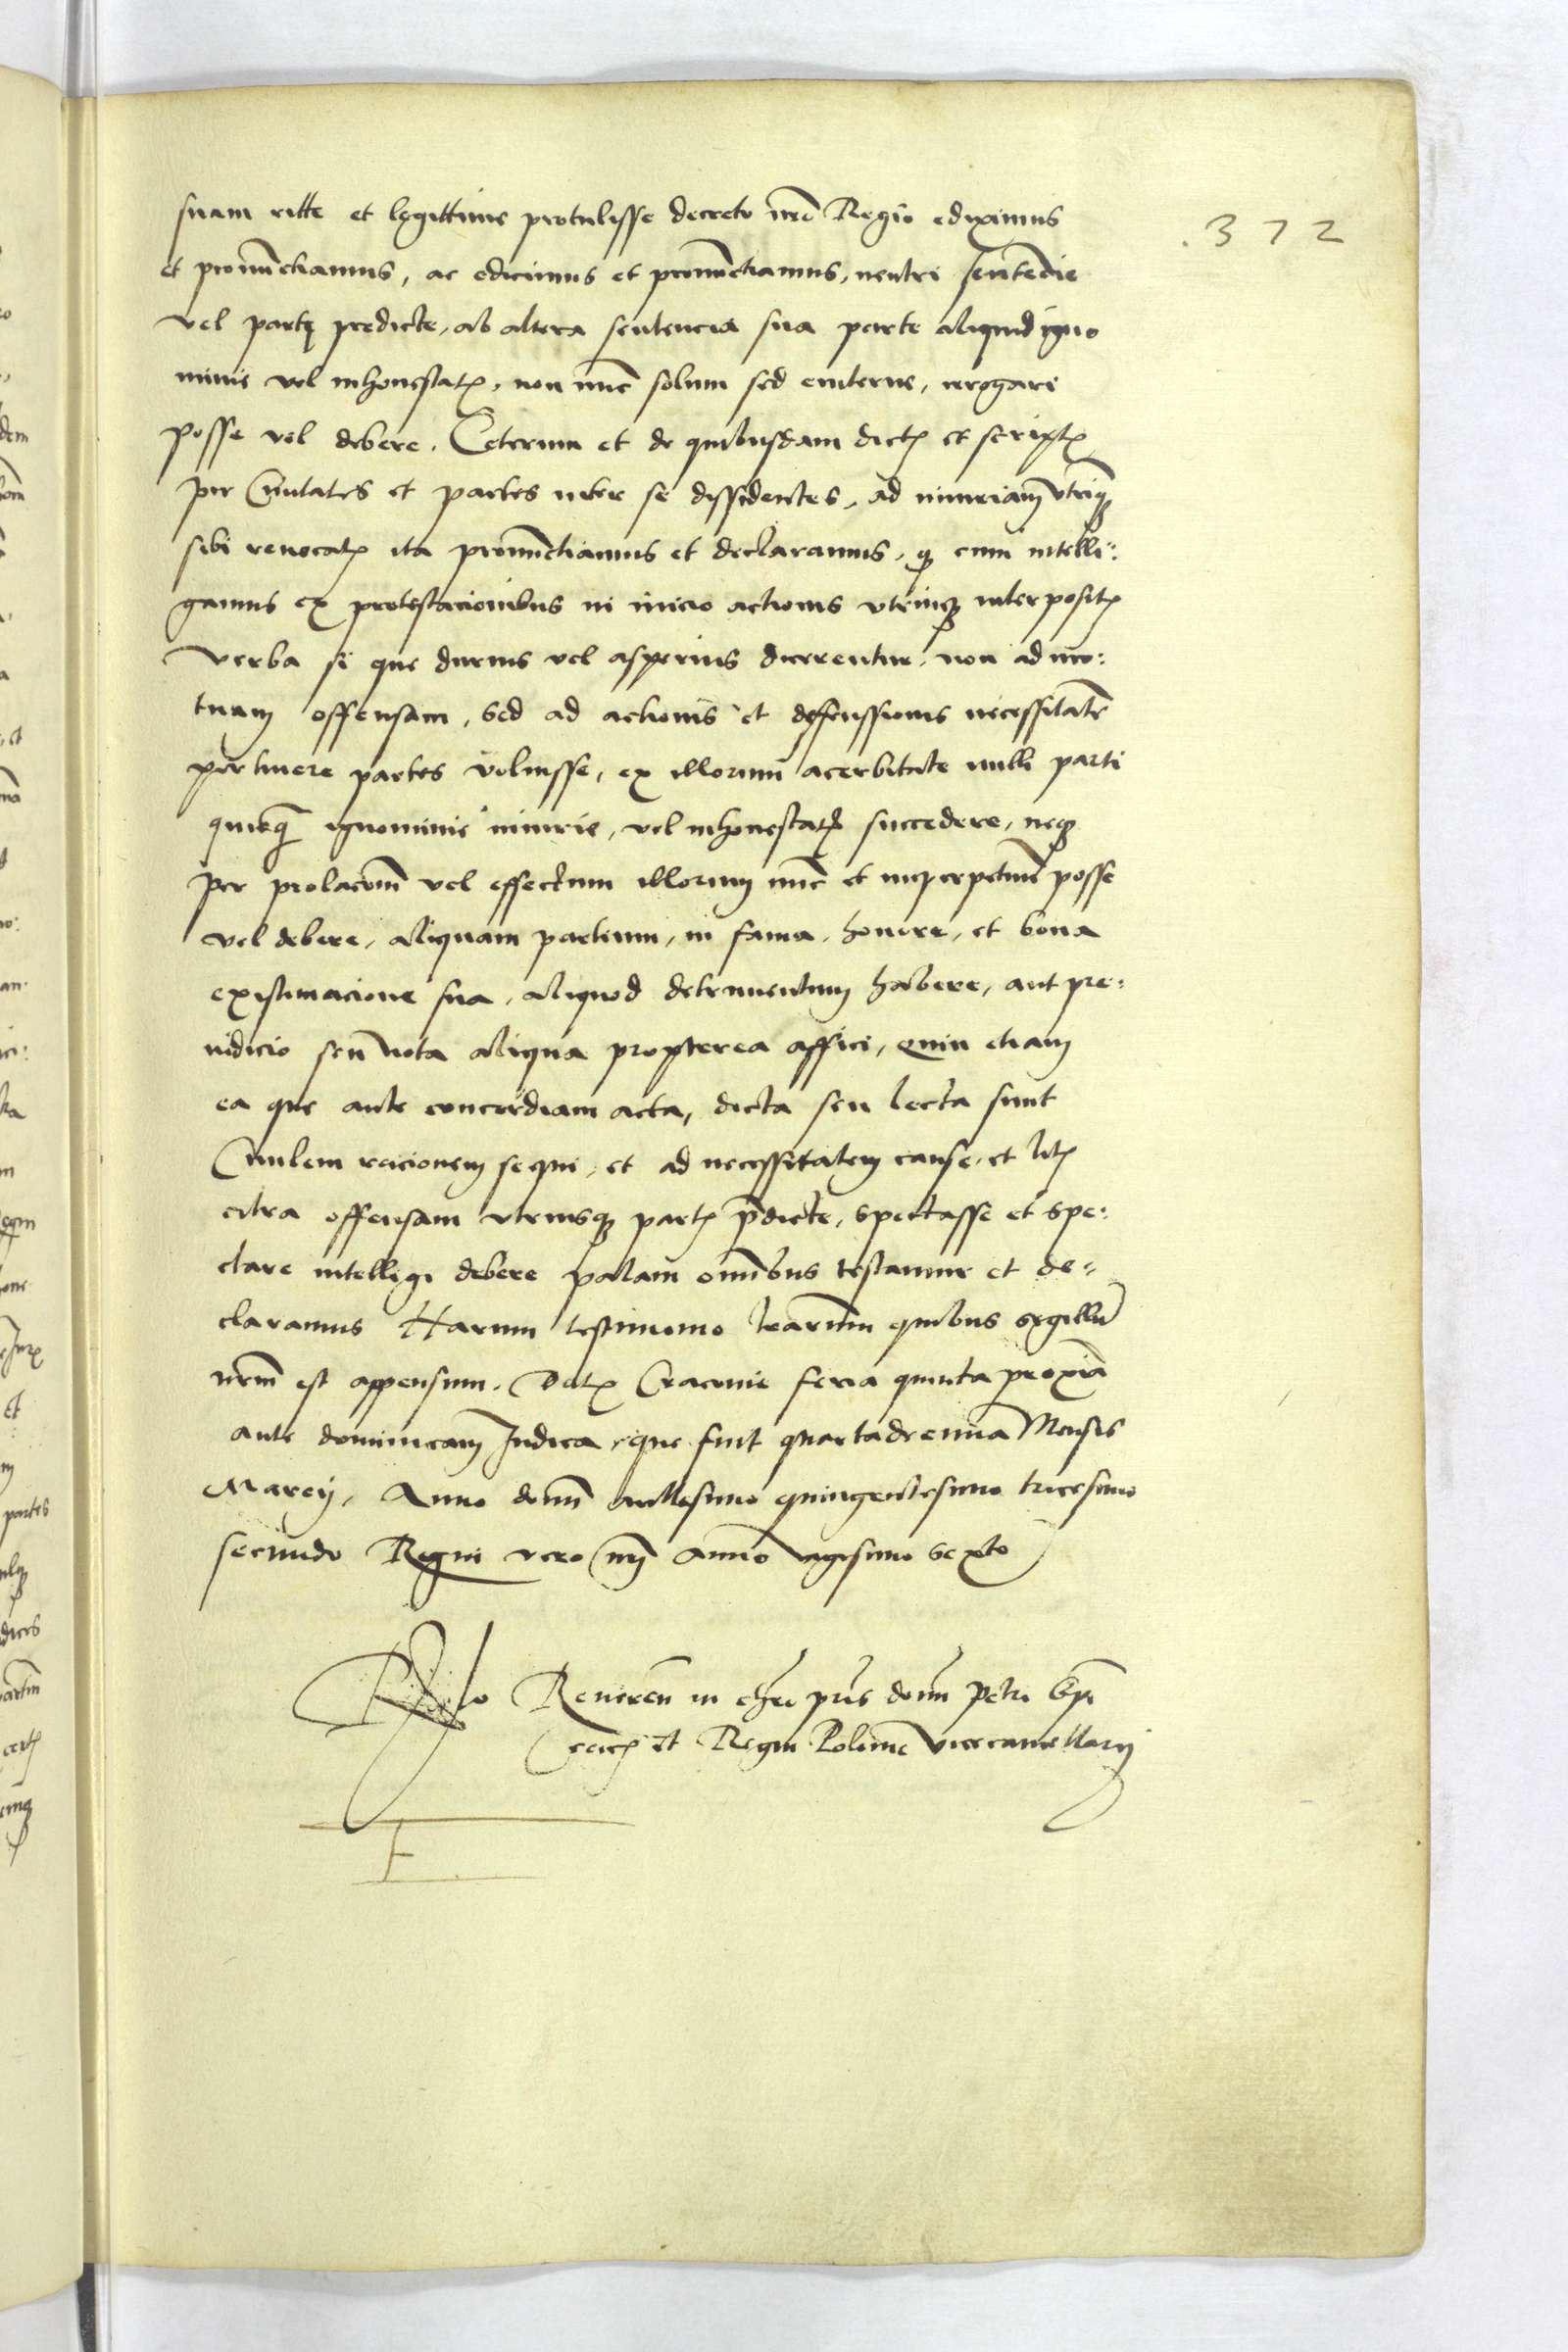 .372
suam ritte et legittime protulisse decreto nr̄o Regio ediximus
et pronunctiamus, ac edicimus et pronunctiamus, neutri sententie
vel partis predicte, ab altera sentencia sua parte aliquid igno
minie vel inhonestatis, non nunc solum sed eviterne, irrogari
posse vel debere. Ceterum et de quibusdam dictis et scriptis
per Civitates et partes inter se dissidentes, ad iniuriam vtrinq
sibi revocatis ita pronunctiamus et declaramus, q cum intelli:
gamus ex protestacionibus in inicio actionis vtrinq interpositis
verba si que durius vel asperius dicerentur, non ad mu:
tuam offensam, sed ad actionis et deffenssionis necessitatē
pertinere partes voluisse, ex illorum acerbitate nulli parti
quicq̄ ignominie iniurie, vel inhonestatis succedere, neq
per prolacōnm vel effectum illorum nunc et inperpetuum posse
vel debere, aliquam partium, in fama, honore, et bona
existimacione sua, aliquod detrimentum habere, aut pre:
iudicio seu nota aliqua propterea affici, Quin etiam
ea que ante concordiam acta, dicta seu lecta sunt
Civilem racionem sequi, et ad necessitatem cause, et litis
citra offensam vtriusq partis p̄dicte, spectasse et spe:
ctare intelligi debere palam omnibus testamur et de=
claramus Harum testimonio lrarum quibus sigillū
nrm̄ est appensum. Datis Cracovie feria quinta proxiā
ante dominicam Judica, que fuit quartadecima Mensis
Marcij, Anno domī millesimo quingentesimo tricesimo
secundo Regni vero nrj Anno vigesimo sexto
Rlō Reveren in chrō pr̄is domī Petri Epī
Cracs et Regni Polonie vicecancellarij